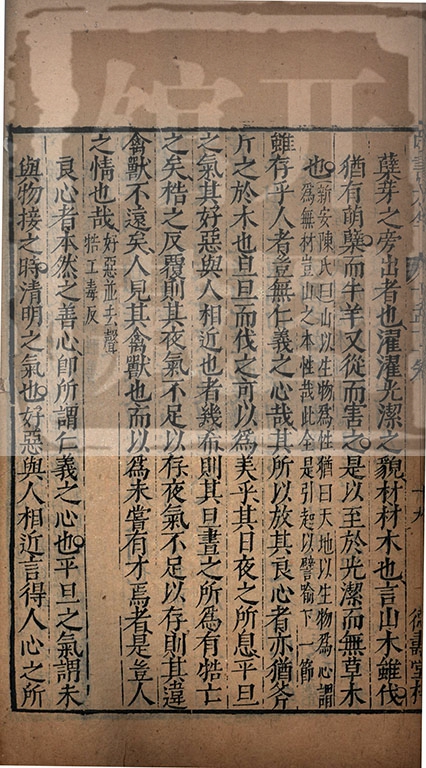 蘖芽之旁出者也濯濯光潔之貌材材木也言山木雖伐
猶有萌蘖而牛羊又從而害之是以至於光潔而無草木
也新安陳氏曰山以生物為性猶曰天地以生物為心謂
為無材豈山之本性哉此全是引起以譬喻下一節
雖存乎人者豈無仁義之心哉其所以放其良心者亦猶斧
斤之於木也旦旦而伐之可以為美乎其日夜之所息平旦
之氣其好惡與人相近也者幾希則其旦晝之所為有牿亡
之矣牿之反覆則其夜氣不足以存夜氣不足以存則其違
禽獸不遠矣人見其禽獸也而以為未嘗有才焉者是豈人
之情也哉好惡並去聲
牿工毒反
良心者本然之善心卽所謂仁義之心也平旦之氣謂未
與物接之時清明之氣也好惡與人相近言得人心之所